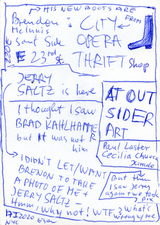 HIS NEW BOOTS ARE
Brendon
McInnis
East Side
E 23rd St
FROM
CITY
OPERA
THRIFT Shop
JERRY
SALTZ is here
I thought I saw
BRAD KAHLHAMER
but it was not
HIM
AT OUT
SIDER
ART
Paul Laster
Cecilia
I DIDN'T LET/WANT
BRENDON TO TAKE
A PHOTO OF ME +
JERRY SALTZ -
Hmm Why not! WTF
But then
I saw Jerry
again
What's
wrong w/ me
2020 NYC